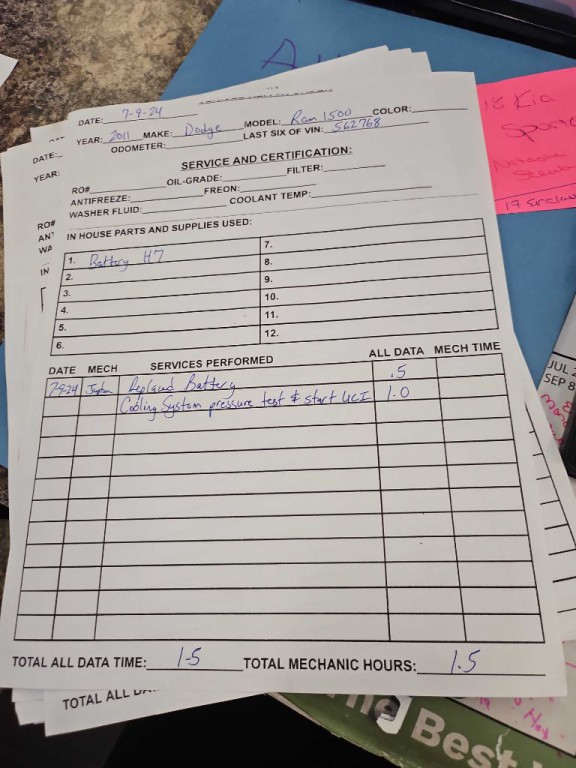 DATE: 7-9-24
YEAR: 2011 MAKE: Dodge MODEL: Ram 1500 COLOR:
ODOMETER: LAST SIX OF VIN: 562768
SERVICE AND CERTIFICATION:
RO# OIL-GRADE: FILTER:
ANTIFREEZE: FREON:
WASHER FLUID: COOLANT TEMP:
IN HOUSE PARTS AND SUPPLIES USED:
1. Battery H7 7.
2. 8.
3. 9.
4. 10.
5. 11.
6. 12.
DATE MECH SERVICES PERFORMED ALL DATA MECH TIME
7-9-24 Replaced Battery .5
Cooling System pressure test & start UCI 1.0
TOTAL ALL DATA TIME: 1-5 TOTAL MECHANIC HOURS: 1.5
DATE:
YEAR:
RO#
IN
TOTAL ALL
18 Kia
JUL
SEP 8
The Best